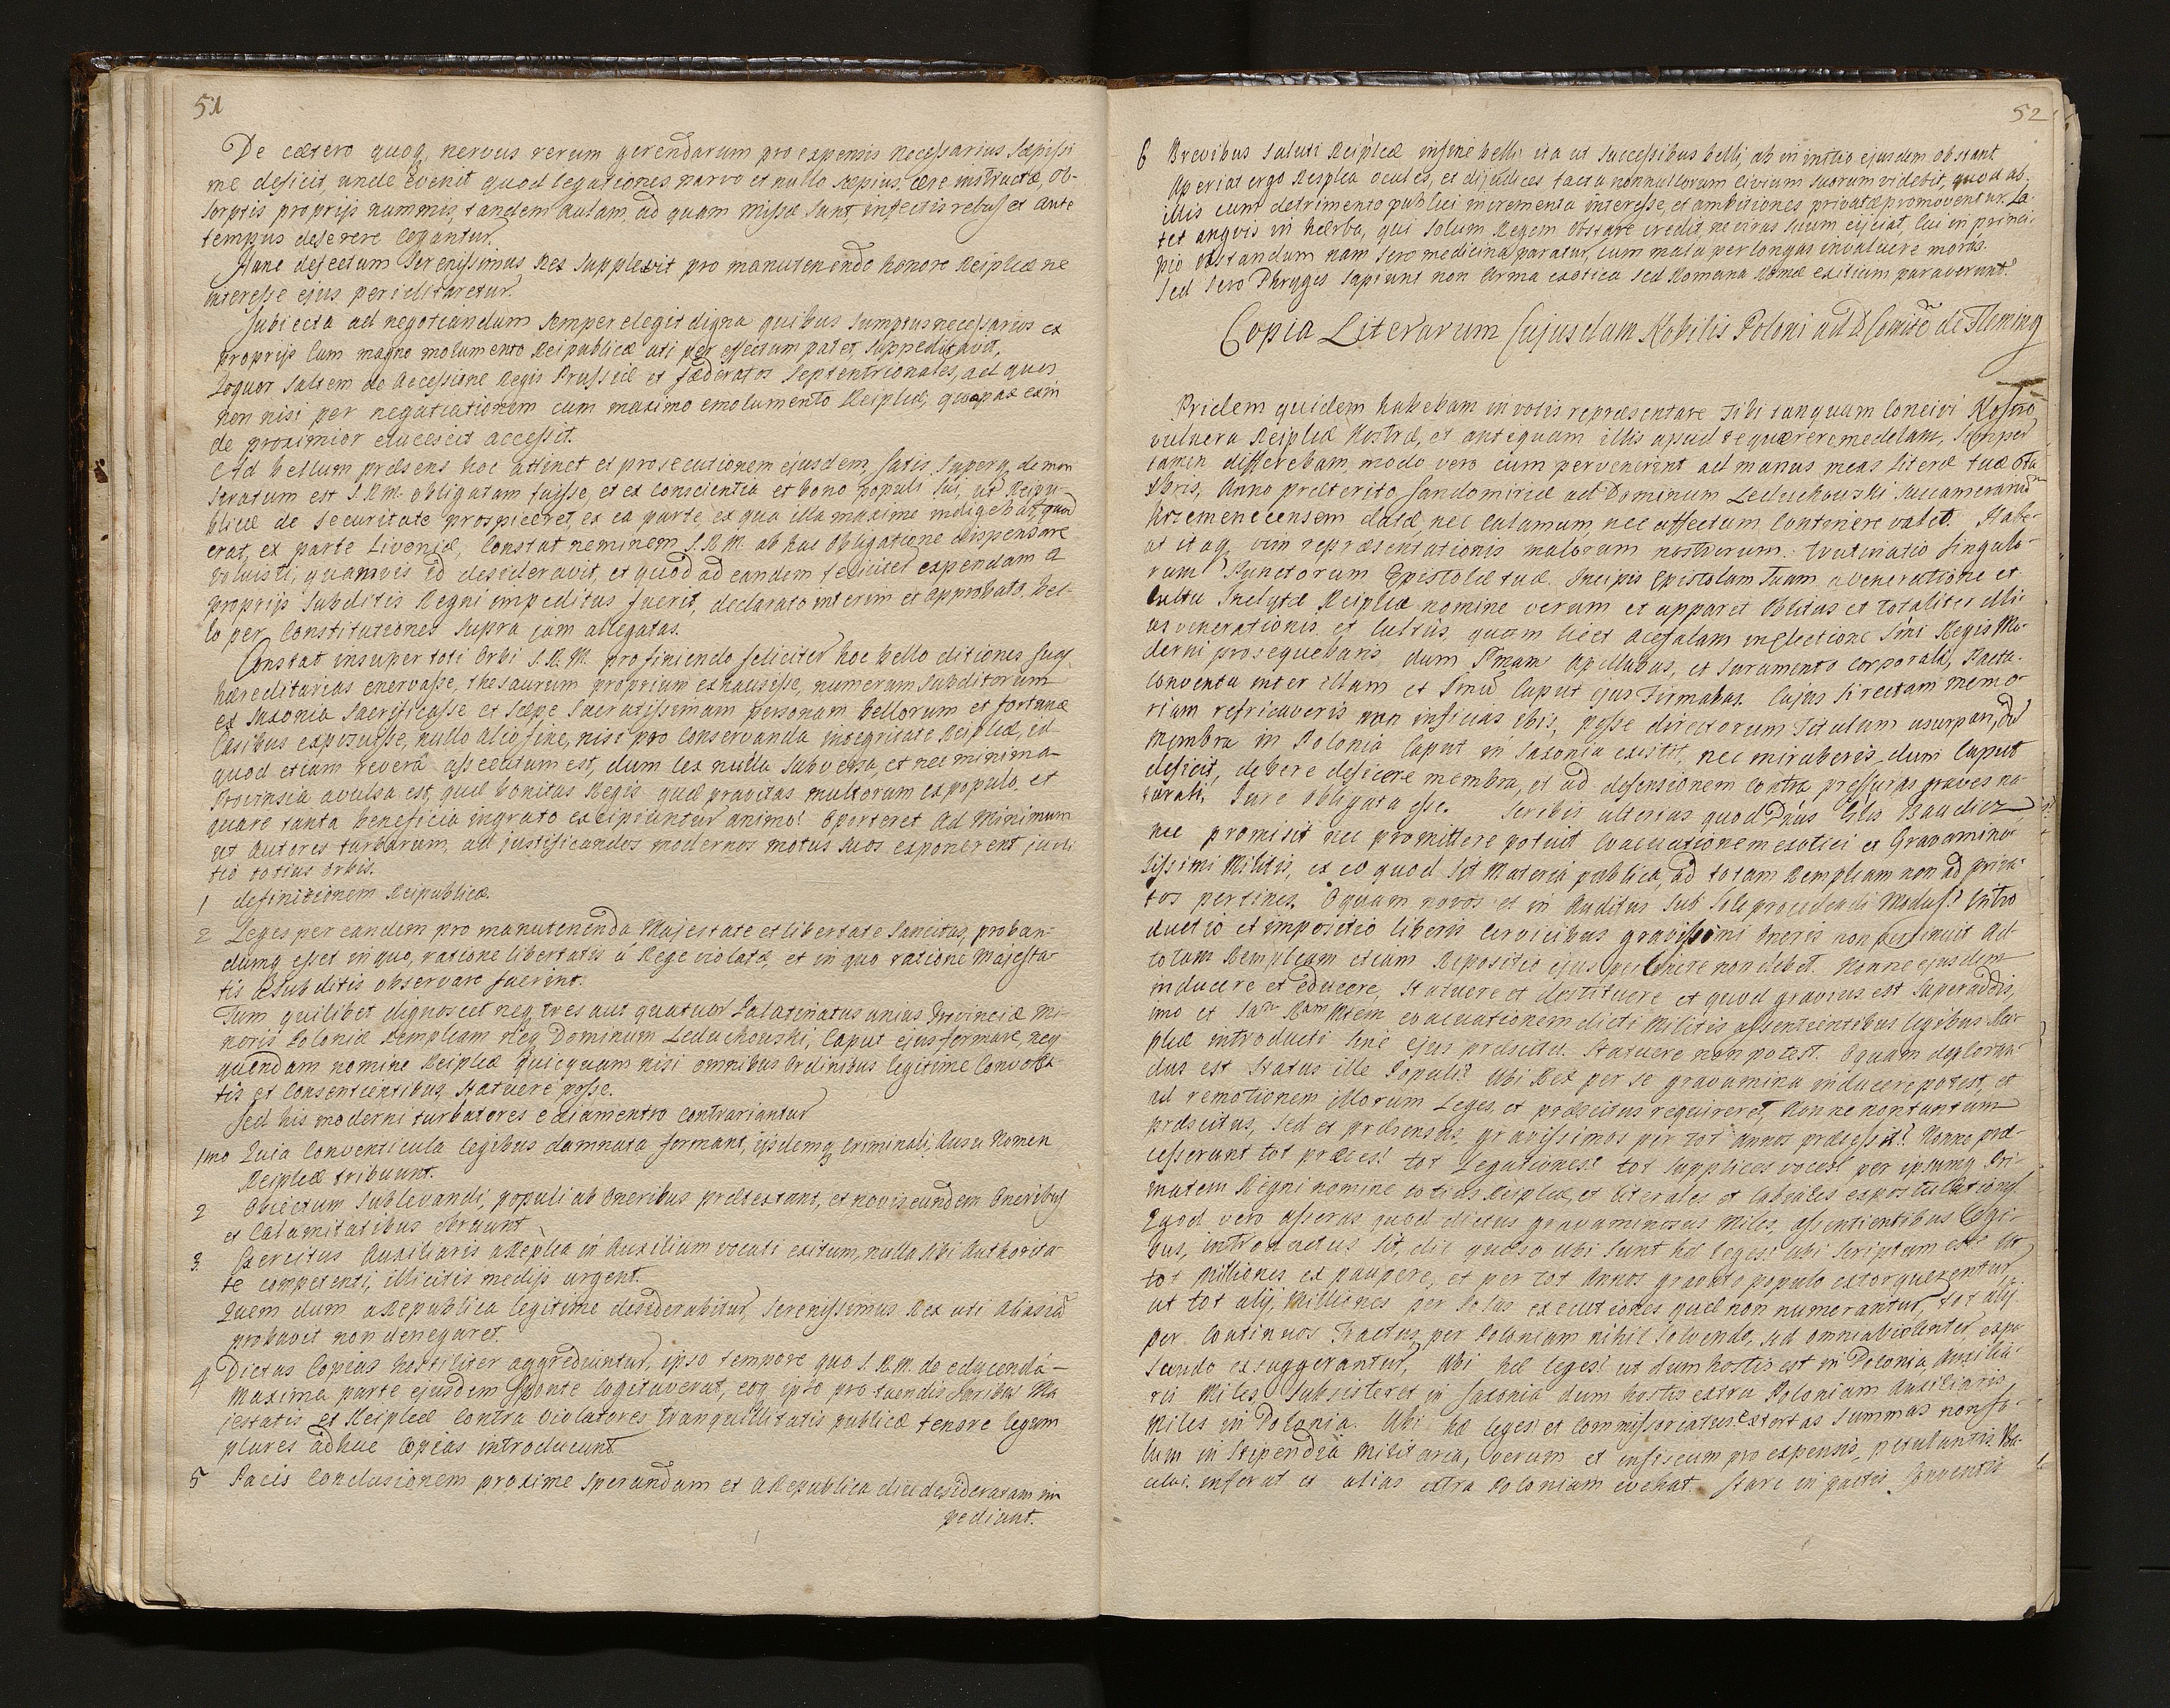 51
De cætero quoq, nervus rerum gerendarum pro expensis necessarius sæpissi
me deficit, unde evenit quod legationes parvo et nullo sæpius, ære instructæ, ob-
sorptis proprijs nummis, tandem aulam, ad quam missæ sunt, infectis rebus et ante
tempus deserere cogantur.
Hunc defectum Serenissimus Rex supplevit pro manutenendo honore Reiplicæ ne
interesse ejus periclitaretur.
Subiecta ad negotiandum semper elegit digna quibus sumptus necessarios ex
proprijs cum magno molumento Reipublicæ uti per effectum patet, suppeditavit,
Loquor saltem de accessione Regis Prussiæ et fœderatos Septentrionales, ad quos
non nisi per negotiationem cum maximo emolumento Reiplicæ, quopax exin
de proximior elucescit accessit.
Ad bellum præsens hoc attinet et prosecutionem ejusdem, satis superq, demon
stratum est S.R.M. obligatam fuisse, et ex conscientia et bono populi sui, ut Reipu-
blicæ de securitate prospiceret, ex ea parte, ex qua illa maxime indigebat, quod
erat, ex parte Livoniæ, constat neminem S.R.M. ab hac obligatione dispensare
voluisti, quamvis id desideravit, et quod ad eandem feliciter expendam a
proprijs subditis Regni impeditus fuerit, declarato interim et approbato bel-
lo per Constitutiones supra jam allegatas.
Constat insuper toti Orbi S.R.M. pro finiendo feliciter hoc bello ditiones suas
hæreditarias enervasse, thesaurum proprium exhausisse, numerum subditorum
ex Saxonia sacrificasse et sæpe sacratissimam personam bellorum et fortunæ
casibus exposuisse, nullo alio fine, nisi pro conservanda integritate Reiplicæ, id
quod etiam revera assecutum est, dum lex nulla subversa, et nec minima
Provinsia avulsa est, quæ bonitas Regis quæ pravitas multorum ex populo, et
quare tanta beneficia ingrato excipiuntur animo! Oporteret ad minimum
ut autores turbarum, ad justificandos modernos motus suos exponerent judi
tio totius Orbis.
1 definitionem Reipublicæ.
2 Leges per eandem pro manutenenda Majestate et libertate sancitas, proban-
dumq esset in quo, ratione libertatis á Rege violatæ, et in quo ratione Majesta-
tis a subditis observare fuerint.
Tum quilibet dignoscet neq, tres aut quatuor Palatinatus unius Provinciæ Mi-
noris Poloniæ Rempleam neq Dominum Leduchowski, Caput ejus formare, neq
quendam nomine Reiplicæ quicquam nisi omnibus Ordinibus legitime convoca-
tis et consentientibus statuere posse.
Sed his moderni turbatores e diamentro contrariantur
1mo Quia Conventicula legibus damnata formant, ijsdemq criminali, ausu Nomen
Reiplicæ tribuunt.
2 Obiectum sublevandi, populi ab Oneribus prætextant, et novis eundem Oneribus
et Calamitatibus obruunt
3. Exercitus Auxiliaris a Replica in Auxilium vocati exitum, nulla sibi Authorita-
te competenti, illicitis medijs urgent.
Quem dum a Republica legitime desiderabitur, Serenissimus Rex uti alias id
probavit non denegaret.
4 Dictas Copias hostiliter aggrediuntur, ipso tempore quo S.R.M. de educenda
maxima parte ejusdem sponte cogitaverat, eoq ipso pro tuendis Juribus Ma
jestatis et Reiplicæ contra violatores tranquillitatis publicæ tenore legum
plures adhuc Copias introducunt
5 Pacis Conclusionem proxime sperandum et a Republica diu desideratam im
pediunt.
52
6 Brevibus saluti Reiplicæ in fine belli ita ut successibus belli, ab in initio ejusdem obstant
Aperiat ergo Resplca oculos, et dijudices facta nonnullorum civium suorum videbit, quod ab
illis cum detrimento publici incrementa interesse, et ambitiones privatæ promoventur. La-
tet angvis in hærba, qui solum Regem obstare credit, ne virus suum ejiciat, Cui in princi-
pio obstandum nam sero medicina paratur, cum mala per longas invaluere moras.
Sed sero Phryges sapiunt non arma exotica sed Romana Romæ exitium paraverunt.
Copia Literarum Cujusdam Nobilis Poloni ad D. Comitẽ de Fleming
Pridem quidem habebam in votis repræsentare tibi tanquam Concivi Nostro
vulnera Reiplicæ Nostræ, et antequam illis apud te quærere medelam, semper
tamen differebam, modo vero cum pervenerint ad manus meas literæ tuæ 8ta
Xbris, Anno præterito Sandomiriæ ad Dominum Leduchowski Succamerarium
Krzemenecensem datæ, nec calamum, nec affectum continere valet. Habe-
at itaq, vim repræsentationis malorum nostrorum. trutinatio singulo-
rum Punctorum Epistolæ tuæ. Incipis Epistolam tuam a veneratione et
cultu Inclytæ Reiplicæ nomine verum et apparet oblitus et totaliter illi-
us venerationis et cultûs, quam licet acefalam in Electione S'mi Regis Mo-
derni prosequebaris dum S'mam apellabas, et juramento corporali, Pacta
Conventa inter illam et S'mũ caput ejus firmabas. Cujus si rectam memo-
riam refricaveris non inficias ibis, posse directorum titulum usurpari, dũ
membra in Polonia Caput in Saxonia existit, nec miraberis, dum Caput
deficit, debere deficere membra, et ad defensionem contra pressuras graves na-
turali Jure obligata esse. Scribis ulterius quod D'nus Glis Baudicz
nec promisit nec promittere potuit evacuationem exotici et Gravamino-
sissimi Militis, ex eo quod sit materia publica, ad totam Rempleam non ad priva-
tos pertinens. O quam novos et in auditus sub sole procedendi Modus! Intro
ductio et impositio liberis cervicibus gravissimi oneris non pertinuit ad
totam Rempleam etiam Repositio ejus pertinere non debet. Nonne ejusdem
inducere et educere, statuere et destituere et quod gravius est superaddis,
imo et Sam Ram Mtem evacuationem dicti militis assentientibus legibus Rei-
plicæ introducti sine ejus præscitu. Statuere non potest. O quam deploran-
dus est Status ille Populi! Ubi Rex per se gravamina inducere potest, et
ad remotionem illorum Leges, et præscitus requireret, Nonne non tantum
præscitus, sed et præsensus, gravissimos per tot annos præcessit? Nonne præ-
cesserunt tot præces! tot Legationes! tot supplices voces! per ipsumq Pri-
matem Regni nomine totius Reiplicæ, et literales et labiales expostulationes
Quod vero asseras quod dictus gravaminosus miles, assentientibus Legi-
bus, introductus sit, dic quæso ubi sunt hæ leges! ubi scriptum est! ut
tot Milliones ex paupere, et per tot Annos gravato populo extorquerentur,
ut tot alij, Milliones per solas executiones quæ non numerantur, tot alij
per continuos Tractus, per Poloniam nihil solvendo, sed omnia violenter, expo
scendo exsuggerantur, Ubi hæ leges! ut dum hostis est in Polonia Auxilia-
ris Miles, subsisteret in Saxonia dum hostis extra Poloniam Auxiliaris
Miles in Polonia. Ubi hæ leges! et Commissoriatus extortas summas non so-
lum in Stipendia Militaria, verum et in fiscum pro expensis, petulantis
inferat et alias extra Poloniam evehat. Stare in pactis Conventis